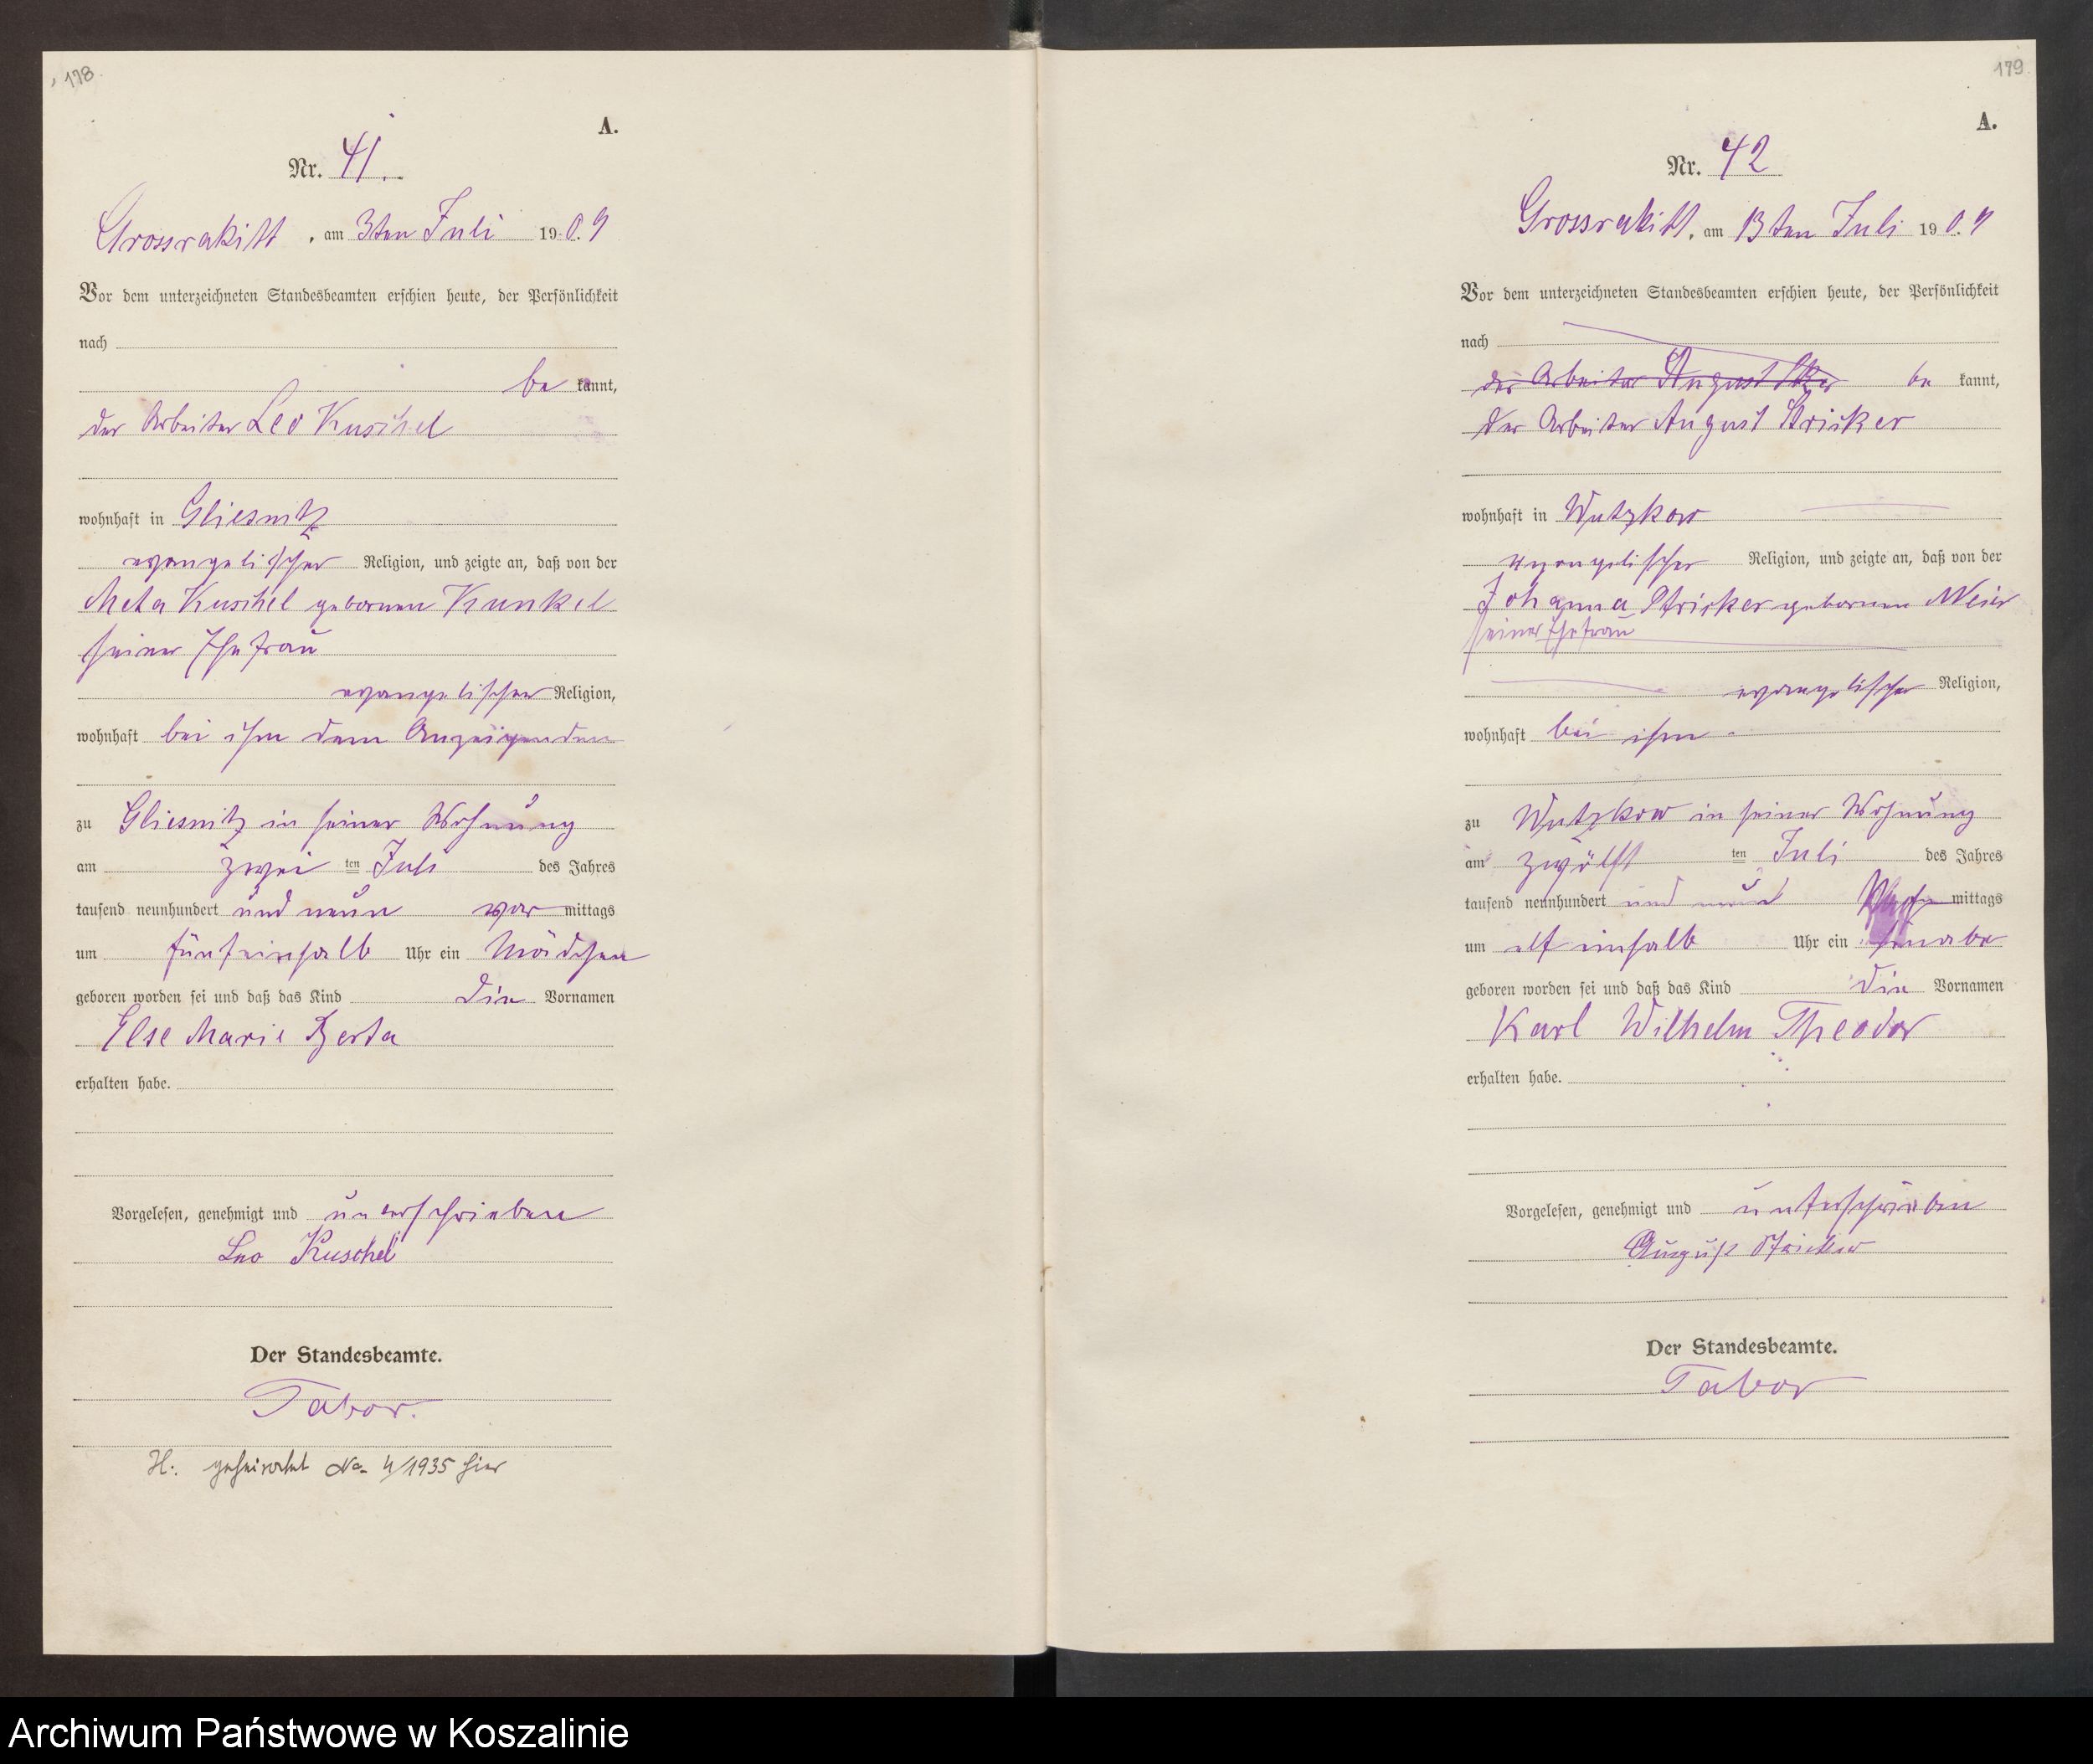 178
A.
Nr. 41.
Grossrakitt, am 3ten Juli 1909
Vor dem unterzeichneten Standesbeamten erschien heute, der Persönlichkeit
nach
be kannt,
der Arbeiter Leo Kuschel
wohnhaft in Gliesnitz
evangelischer Religion, und zeigte an, daß von der
Meta Kuschel geborenen Kunkel
seiner Ehefrau
evangelischer Religion,
wohnhaft bei ihm dem Anzeigenden
zu Gliesnitz in seiner Wohnung
am zwei ten Juli des Jahres
tausend neunhundert und neun vor mittags
um fünf einhalb Uhr ein Mädchen
geboren worden sei und daß das Kind die Vornamen
Else Marie Berta
erhalten habe.
Vorgelesen, genehmigt und unterschrieben
Leo Kuschel
Der Standesbeamte.
Tabor.
H. geheiratet No. 4/1935 hier
179
A.
Nr. 42
Grossrakitt, am 13ten Juli 1909
Vor dem unterzeichneten Standesbeamten erschien heute, der Persönlichkeit
nach
der Arbeiter August be kannt,
der Arbeiter August Stricker
wohnhaft in Wutzkow
evangelischer Religion, und zeigte an, daß von der
Johanna Stricker geborenen Meier
seiner Ehefrau
evangelischer Religion,
wohnhaft bei ihm
zu Wutzkow in seiner Wohnung
am zwölft ten Juli des Jahres
tausend neunhundert und neun mittags
um elf einhalb Uhr ein Knabe
geboren worden sei und daß das Kind die Vornamen
Karl Wilhelm Theodor
erhalten habe.
Vorgelesen, genehmigt und unterschrieben
August Stricker
Der Standesbeamte.
Tabor
Archiwum Państwowe w Koszalinie